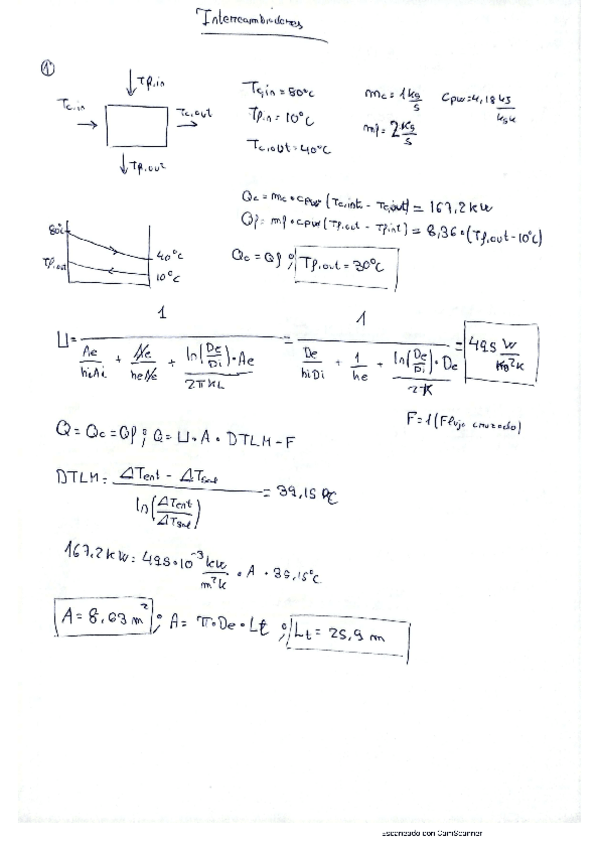 Intercambiadores
1)
Tp,in
Tc,in
Tc,out
Tp,out
Tc,in = 80°C
Tp,in = 10°C
Tc,out = 40°C
mc = 1 kg/s
mp = 2 kg/s
Cpw = 4,18 kJ/kgK
Qc = mc · cpw (Tc,int - Tc,out) = 167,2 kW
Qp = mp · cpw (Tp,out - Tp,int) = 8,36 · (Tp,out - 10°C)
Qc = Qp ; Tp,out = 30°C
80°C
Tp,out
40°C
10°C
U = 1 / (Ae/hiAi + Ae/heAe + ln(De/Di)·Ae/2πKL) = 1 / (De/hiDi + 1/he + ln(De/Di)·De/2K) = 495
F = 1 (Flujo cruzado)
Q = Qc = Qp ; Q = U · A · DTLM - F
DTLM = (ΔTent - ΔTsal) / ln(ΔTent/ΔTsal) = 39,15 °C
167,2 kW = 495·10^-3 kW/m²K · A · 39,15°C
A = 8,63 m² ; A = π · De · Lt ; Lt = 25,9 m
Escaneado con CamScanner